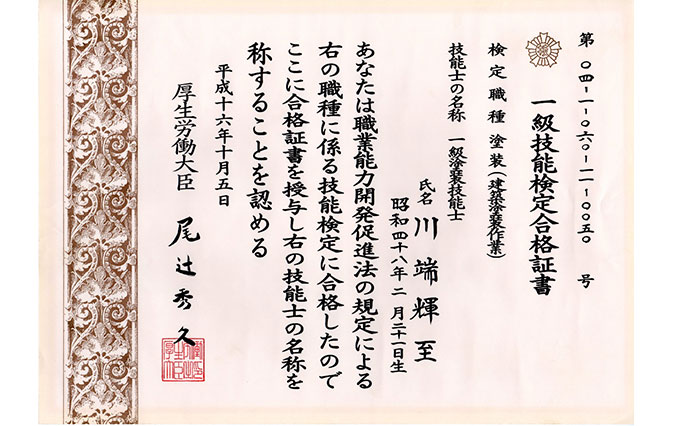 第 〇四-一-〇六〇-一一-〇〇五〇 号
一級技能検定合格証書
検定職種 塗装(建築塗装作業)
技能士の名称 一級塗装技能士
氏名 川端輝至
昭和四十八年 二 月二十一日生
あなたは職業能力開発促進法の規定による
右の職種に係る技能検定に合格したので
ここに合格証書を授与し右の技能士の名称を
称することを認める
平成十六年十月五日
厚生労働大臣 尾辻秀久